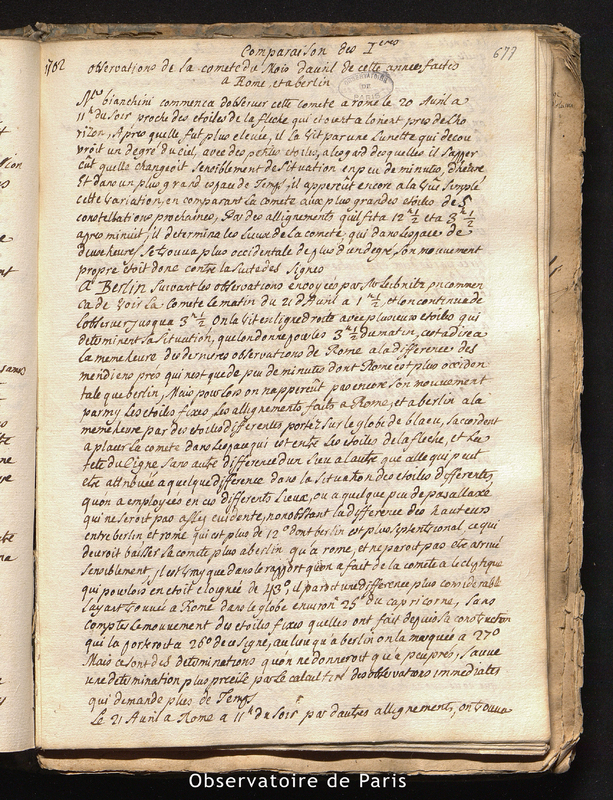 Comparaison des Ieres
677
1702
observations de la comete du Mois d'avril de cette année faites
a Rome, et a berlin
OBSERVATOIRE
DE
PARIS
Mr bianchini commenca dobserver cette Comete a rome le 20 Avril a
11h du Soir proche des étoiles de la fleche qui étoient a lorient pres de Lho
rizon, Apres quelle fut plus elevée, il la vit par une Lunette qui decou
vroit un degré du ciel, avec des petites etoiles, a legard desquelles il sapper
cut quelle changeoit sensiblement de Situation en peu de minutes d'heure
Et dans un plus grand espace de Temps, il appercut encore a la vüe simple
cette variation, en comparant la comete aux plus grandes etoiles de 5
constellations prochaines, Par des allignements quil fit a 12h 1/2 et a 3h 1/2
apres minuit, il determina les Lieux de la comete qui dans lespace de
deux heures se trouva plus occidentale de plus d'un degré, Son mouvement
propre étoit donc contre la suite des Signes
A Berlin Suivant les observations envoyées par Mr Leibnitz on commen
ca de voir la Comete le matin du 21 d'Avril a 1h 1/2 et lon continua de
lobserver jusqu a 3h 1/2 On la vit en ligne droite avec plusieurs etoiles qui
determinent sa Situation, que lon donne pour les 3h 1/2 du matin, cest a dire a
la meme heure des dernieres observations de Rome a la difference des
meridiens prés qui nest que de peu de minutes dont Rome est plus occiden
tale que berlin, Mais pour lors on n'apperceut pas encore son mouvement
parmy les etoiles fixes, les allignements faits a Rome, et a berlin a la
meme heure par des etoiles differentes portez sur le globe de blaeu, saccordent
a placer la comete dans lespace qui est entre les etoiles de la fleche, et La
teste du Cigne sans autre difference d'un Lieu a lautre que celle qui peut
etre attribuée a quelque difference dans la situation des etoiles differentes
quon a employées en ces differents Lieux, ou a quelque peu de parallaxe
qui ne seroit pas assez evidente, nonobstant la difference des hauteurs
entre berlin et rome qui est plus de 12° dont berlin est plus septentrional, ce qui
devroit baisser la comete plus a berlin qu'a rome, et ne paroit pas etre arrivé
sensiblement, il est vray que dans le rapport quon a fait de la comete a lecliptique
qui pour lors en etoit eloignée de 43°, il paroit une difference plus considerable
layant trouvée a Rome dans le globe environ 25° du capricorne, sans
compter le mouvement des etoiles fixes quelles ont fait depuis sa construction
qui la porteroit a 26° de ce signe, au lieu qu'a berlin on la marquée a 27°
Mais ce sont des determinations qu'on ne donneroit qu'a peu prés, sauve
une determination plus precise par le calcul tiré des observations immediates
qui demande plus de Temps
Le 21 Avril a Rome a 11h du Soir par dautres allignements, on trouva
Observatoire de Paris